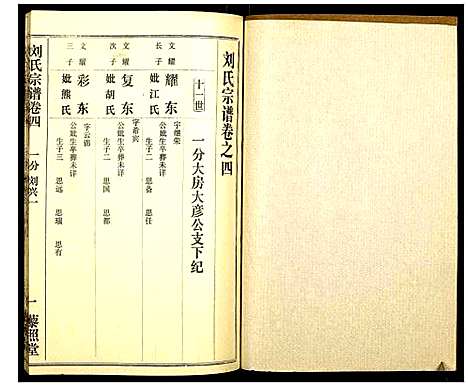 刘氏宗谱卷之四
一分大房大彦公支下纪
十一世
文耀长子
耀东 字继荣
妣江氏 公妣生卒葬未详
生子二 思备 思任
文耀次子
复东 字希宾
妣胡氏 公妣生卒葬未详
生子二 思国 思都
文耀三子
彩东 字云锦
妣熊氏 公妣生卒葬未详
生子三 思远 思瑞 思有
刘氏宗谱卷四 一分 刘兴一 一 藜照堂